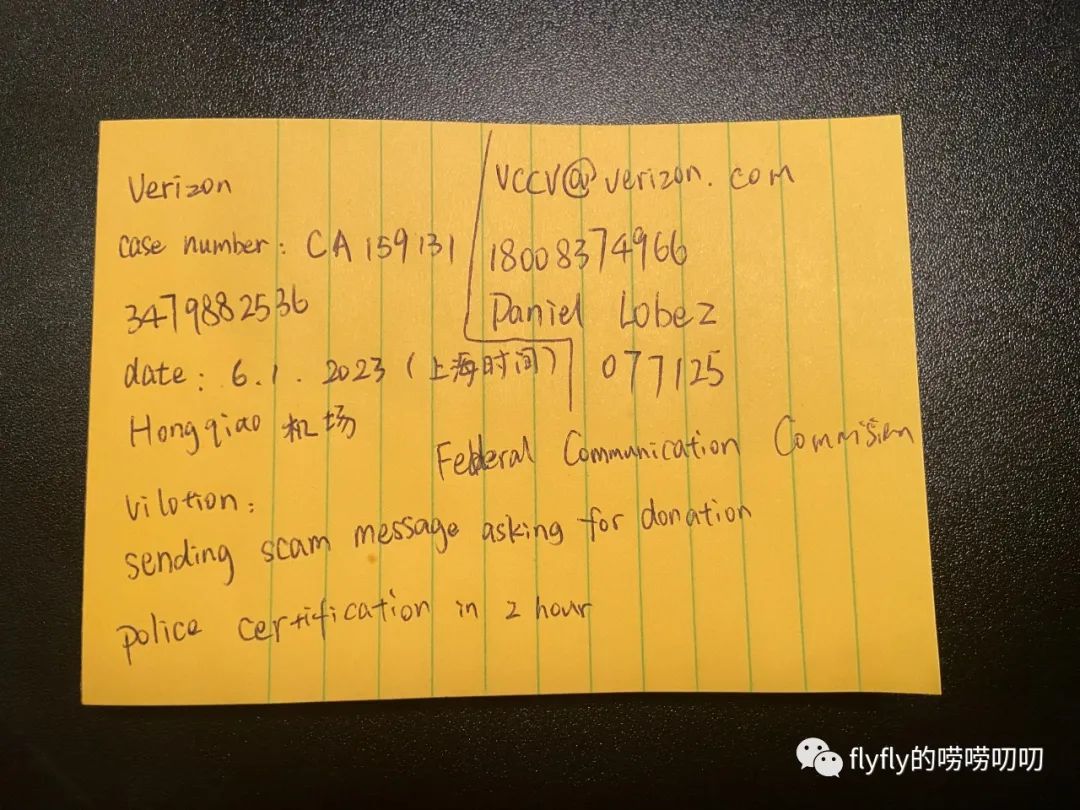 Verizon
case number: CA 159131
3479882536
date: 6.1. 2023 (上海时间)
Hongqiao 机场
VCCV@verizon.com
18008374966
Daniel Lobez
077125
Federal Communication Commision
Vilotion:
sending scam message asking for donation
police certification in 2 hour
flyfly的唠唠叨叨